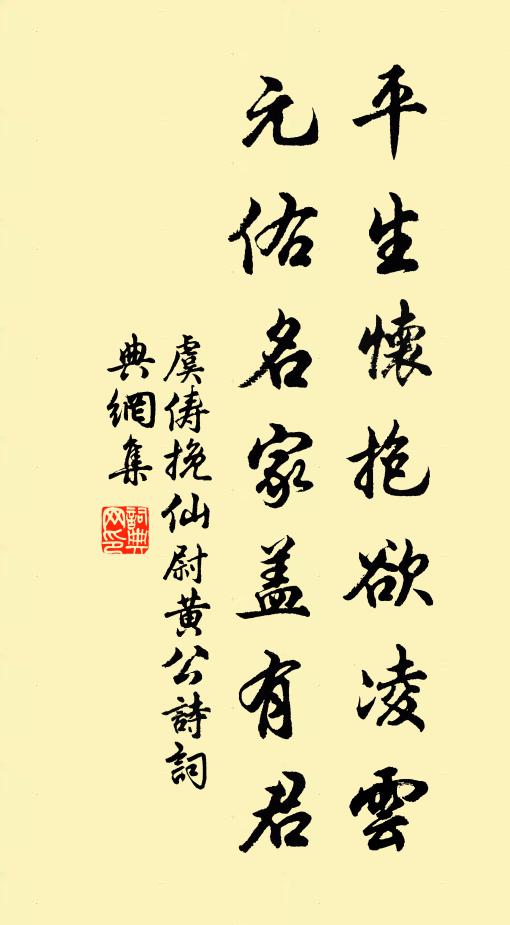 平生懷抱欲凌雲
元佑名家盖有君
虞儔挽仙尉黄公詩詞
典網集
詞典
网印